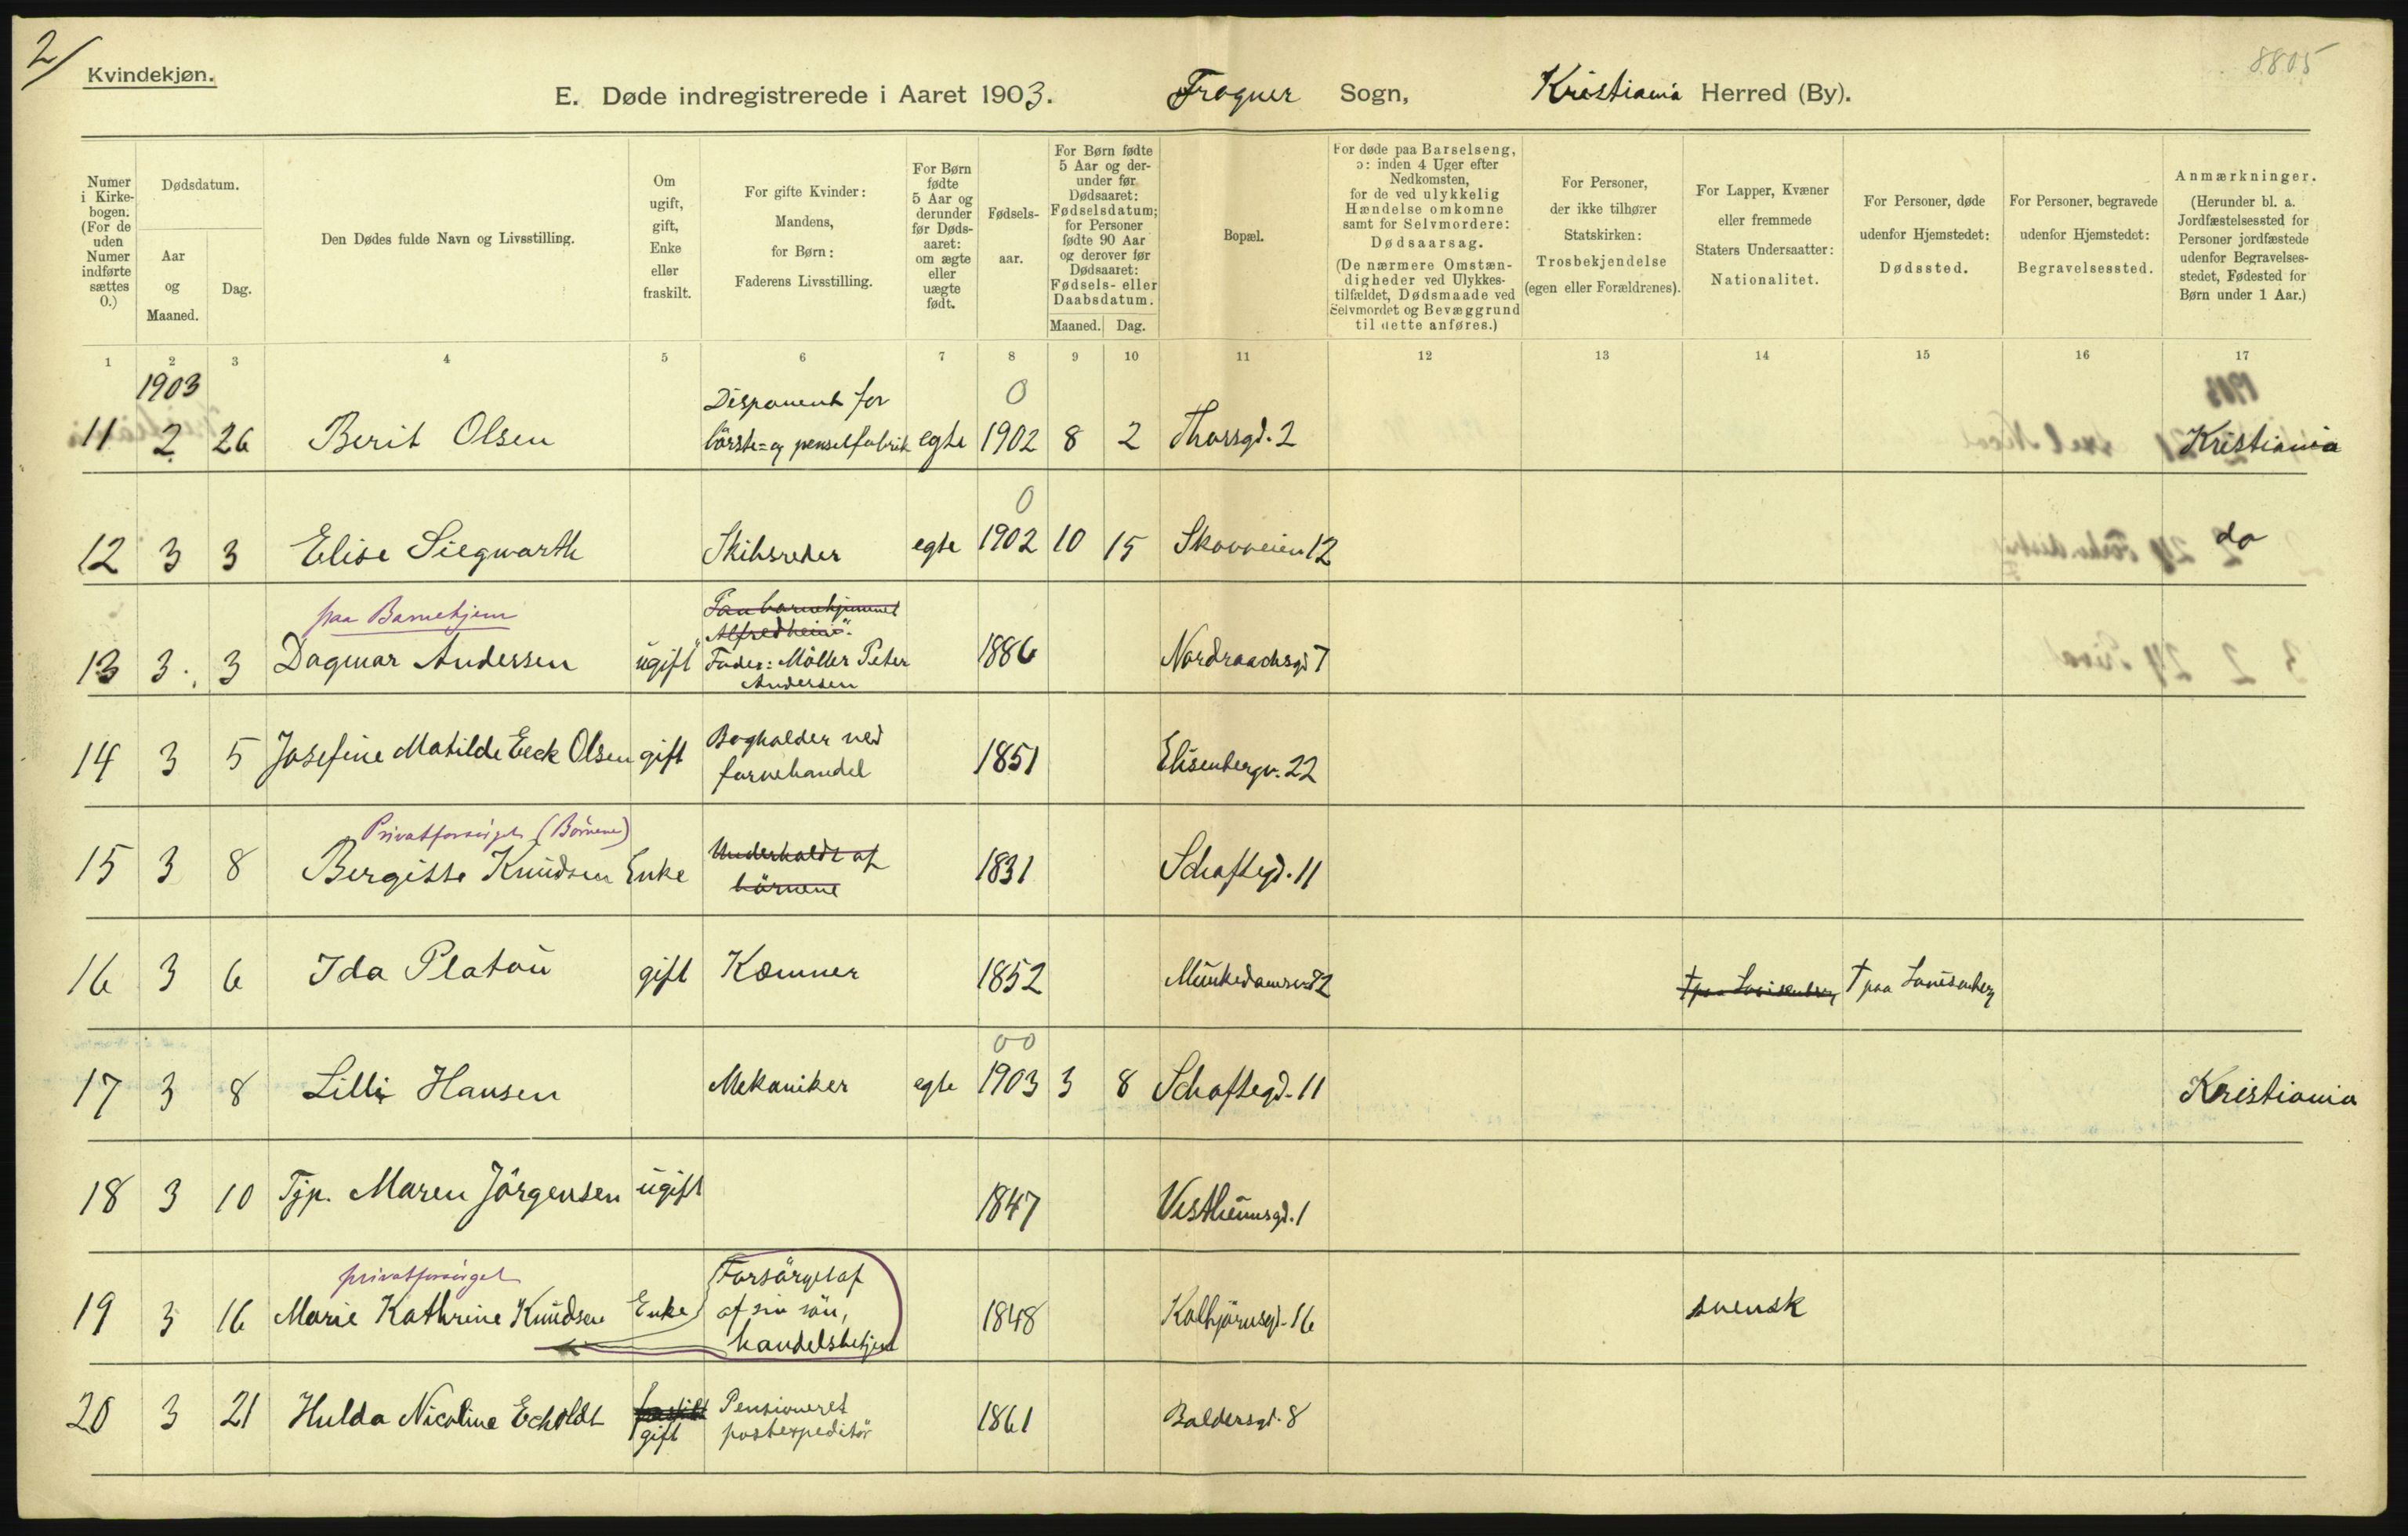 2/
Kvindekjøn.
8805
E. Døde indregistrerede i Aaret 1903. Frogner Sogn, Kristiania Herred (By).
Numer i Kirkebogen. (For de uden Numer indførte sættes 0.)
Dødsdatum.
Aar og Maaned.
Dag.
Den Dødes fulde Navn og Livsstilling.
Om ugift, gift, Enke eller fraskilt.
For gifte Kvinder: Mandens, for Børn: Faderens Livsstilling.
For Børn fødte 5 Aar og derunder før Dødsaaret: om ægte eller uægte født.
Fødselsaar.
For Børn fødte 5 Aar og derunder før Dødsaaret: Fødselsdatum; for Personer fødte 90 Aar og derover før Dødsaaret: Fødsels- eller Daabsdatum.
Maaned. Dag.
Bopæl.
For døde paa Barselseng, ɔ: inden 4 Uger efter Nedkomsten, for de ved ulykkelig Hændelse omkomne samt for Selvmordere: Dødsaarsag. (De nærmere Omstændigheder ved Ulykkestilfældet, Dødsmaade ved Selvmordet og Bevæggrund til dette anføres.)
For Personer, der ikke tilhører Statskirken: Trosbekjendelse (egen eller Forældrenes).
For Lapper, Kvæner eller fremmede Staters Undersaatter: Nationalitet.
For Personer, døde udenfor Hjemstedet: Dødssted.
For Personer, begravede udenfor Hjemstedet: Begravelsessted.
Anmærkninger. (Herunder bl. a. Jordfæstelsessted for Personer jordfæstede udenfor Begravelsesstedet, Fødested for Børn under 1 Aar.)
1 2 3 4 5 6 7 8 9 10 11 12 13 14 15 16 17
1903
Disponent for 0
11 2 26 Berit Olsen börste= og penselfabrik egte 1902 8 2 Thorsgd. 2 Kristiania
0
12 3 3 Elise Siegwarth Skibsreder egte 1902 10 15 Skovveien 12 do
paa Barnehjem Paa barnehjemmet
"Alfredheim".
13 3 3 Dagmar Andersen ugift Fader: Möller Peter 1886 Nordraachsgd 7
Andersen
14 3 5 Josefine Matilde Eeck Olsen gift Bogholder ved 1851 Elisenbergv. 22
farvehandel
Privatforsörget (Börnene)
15 3 8 Bergitte Knudsen Enke Underholdt af 1831 Schaftegd. 11
börnene
16 3 6 Ida Platou gift Kæmner 1852 Munkedamsv. 72 † paa Lovisenberg † paa Louisenberg
00
17 3 8 Lilli Hansen Mekaniker egte 1903 3 8 Schaftegd. 11 Kristiania
18 3 10 Tjp. Maren Jörgensen ugift 1847 Vestheimsgd. 1
privatforsörget Forsörget af
19 3 16 Marie Kathrine Knudsen Enke af sin sön, 1848 Kolbjörnsgd. 16 svensk
handelsbetjent
20 3 21 Hulda Nicoline Echoldt fraskilt Pensioneret 1861 Baldersgd. 8
gift postexpeditör